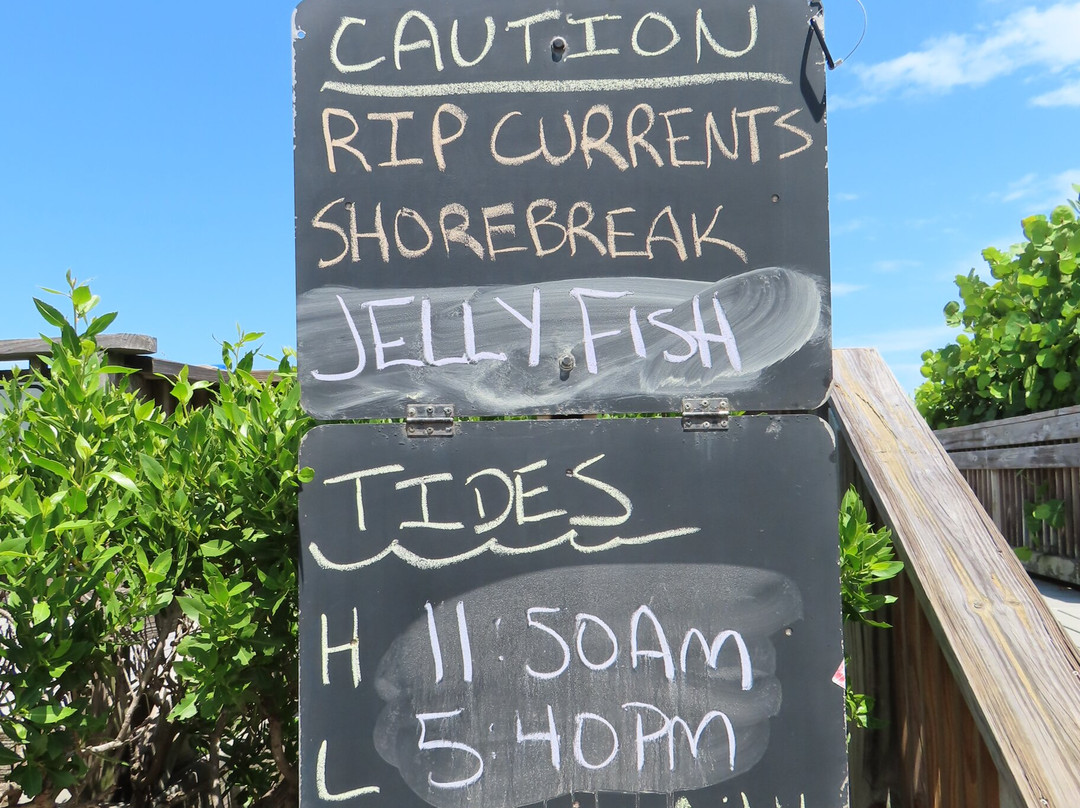 CAUTION
RIP CURRENTS
SHOREBREAK
JELLYFISH
TIDES
H 11:50AM
L 5:40PM